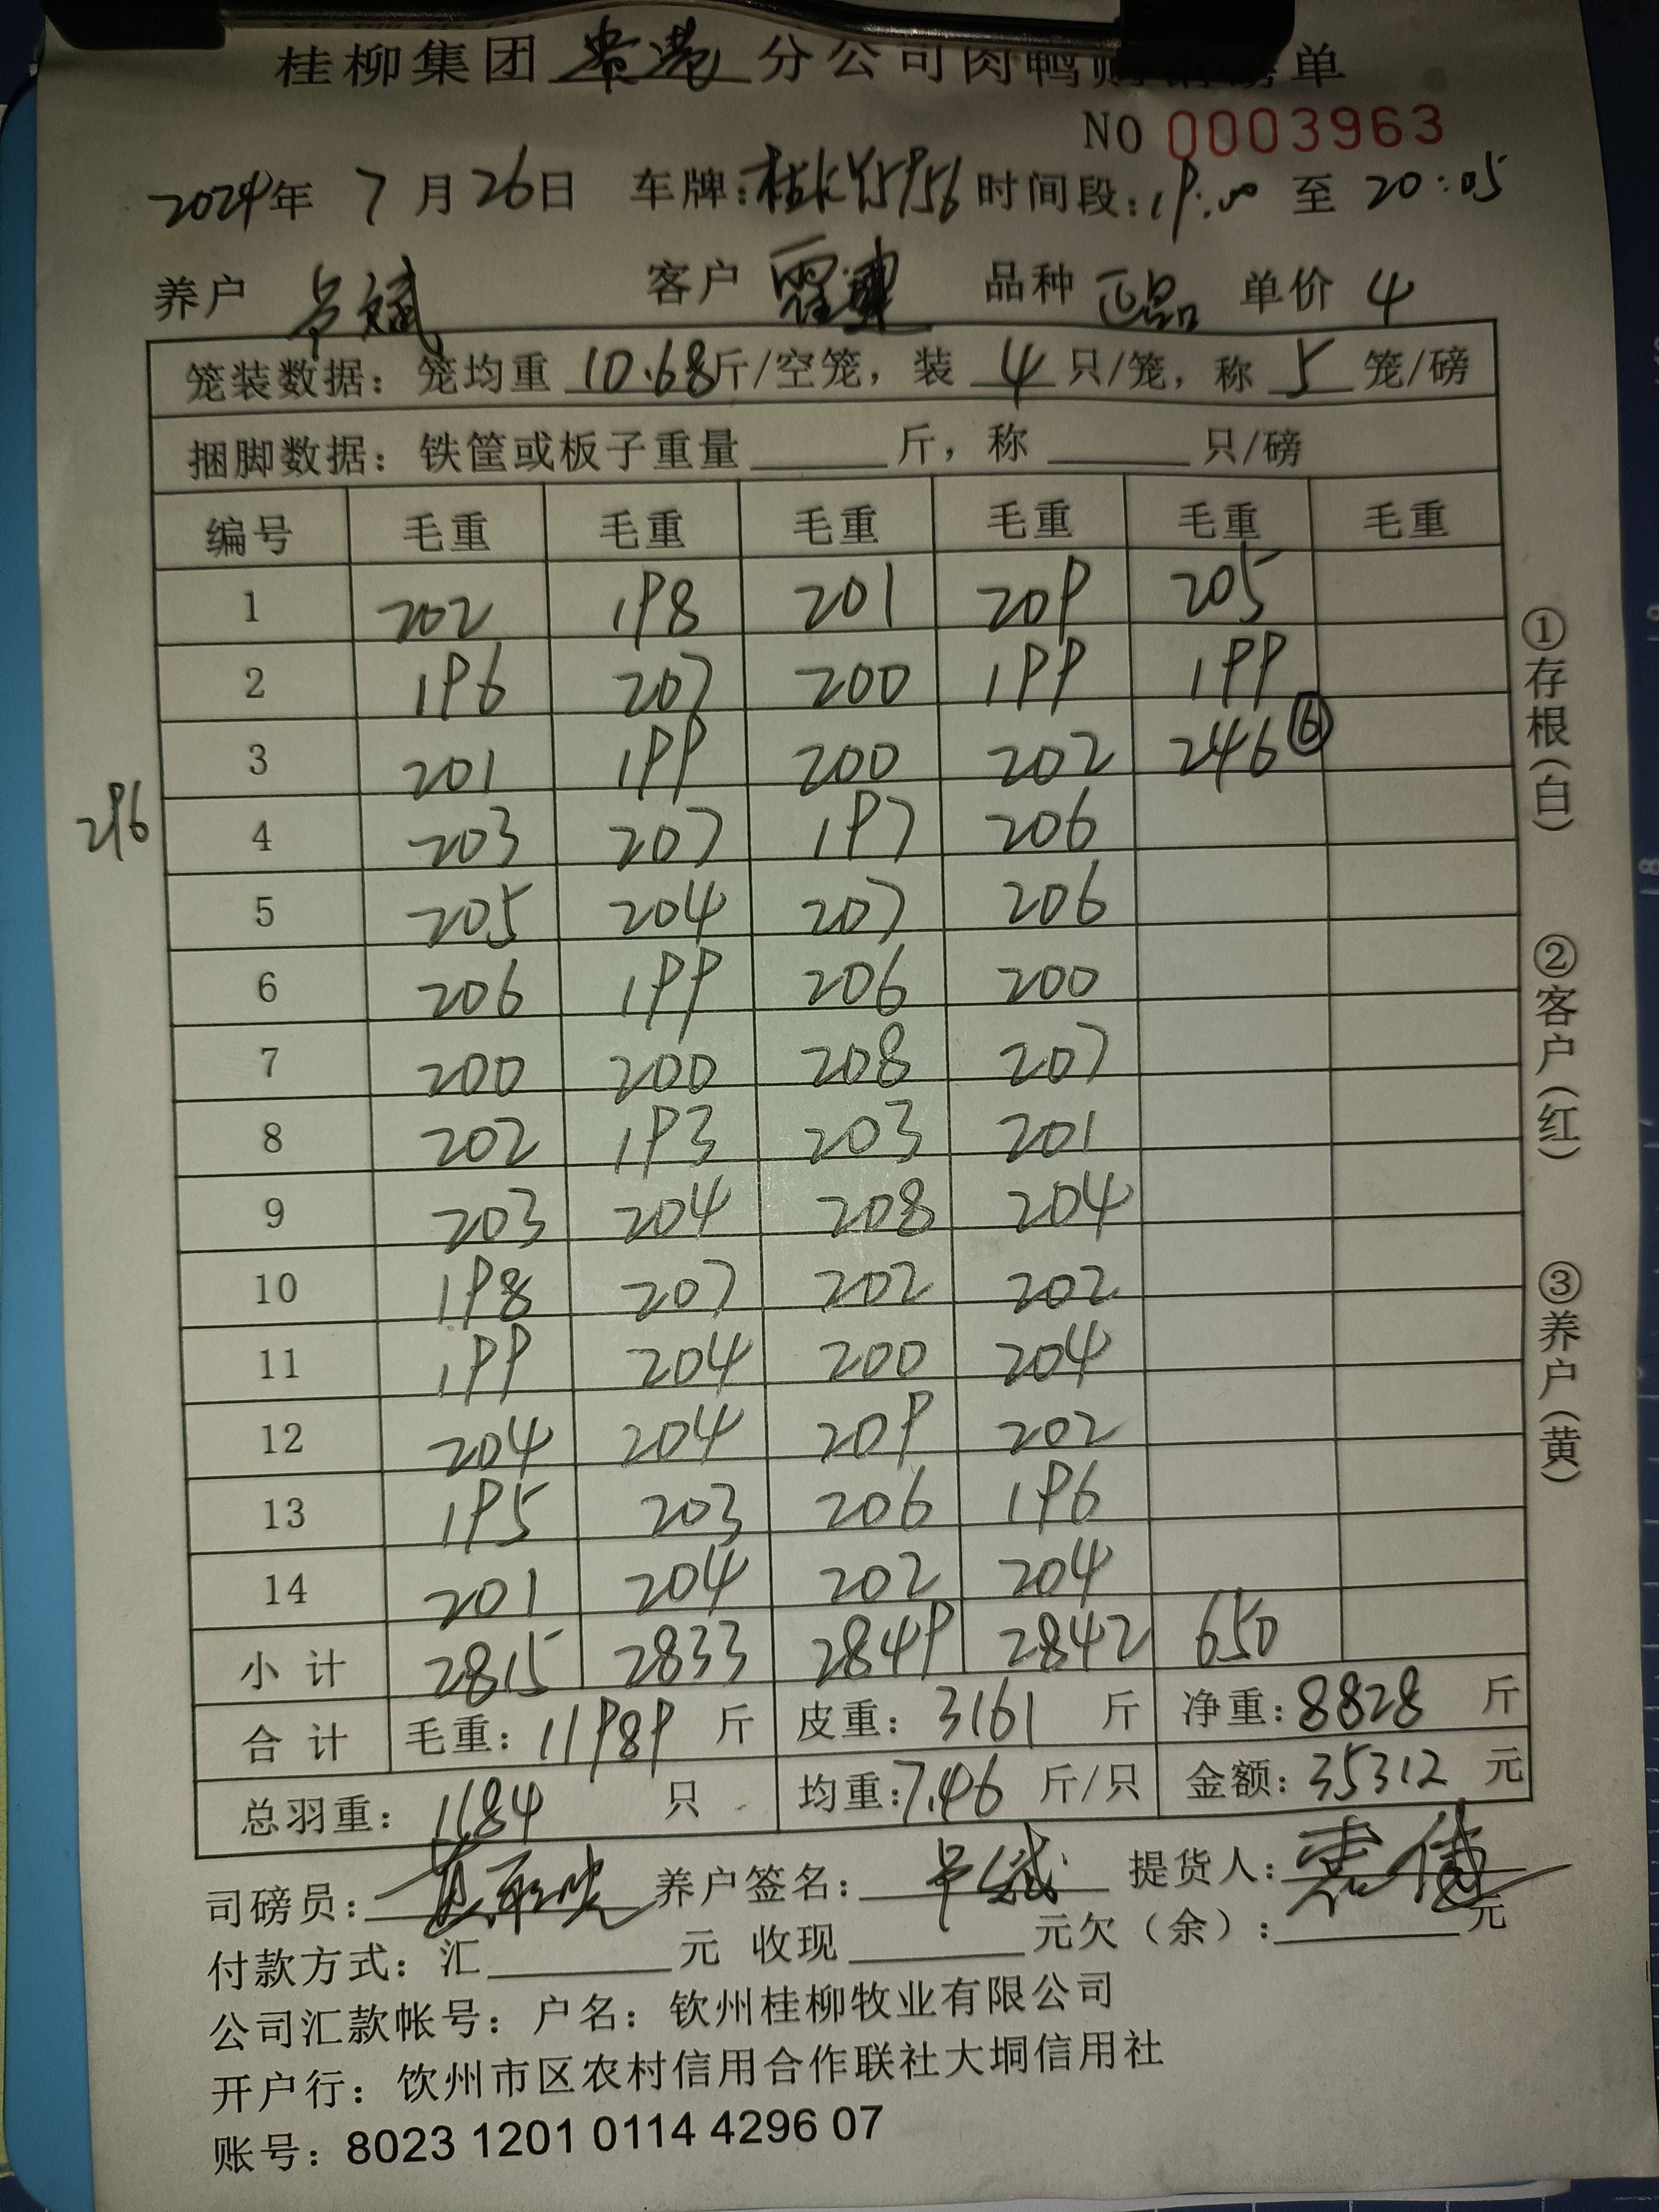 桂柳集团 贵港 分公司肉鸭购销磅单
NO 0003963
2024年 7月26日 车牌: 时间段:19:00 至 20:05
养户 卢斌 客户 品种 正品 单价 4
笼装数据：笼均重 10.68斤/空笼，装 4 只/笼，称 5 笼/磅
捆脚数据：铁筐或板子重量______斤，称______只/磅
编号 毛重 毛重 毛重 毛重 毛重 毛重
1 202 198 201 209 205
2 196 207 200 199 199
3 201 199 200 202 246 ⑥
296
4 203 207 197 206
5 205 204 207 206
6 206 199 206 200
7 200 200 208 207
8 202 193 203 201
9 203 204 208 204
10 198 207 202 202
11 199 204 200 204
12 204 204 209 202
13 195 203 206 196
14 201 204 202 204
小计 2815 2833 2849 2842 650
合计 毛重：11989 斤 皮重：3161 斤 净重：8828 斤
总羽重：1184 只 均重：7.46 斤/只 金额：35312 元
司磅员： 养户签名： 提货人：
付款方式：汇______元 收现______元欠（余）：______元
公司汇款帐号：户名：钦州桂柳牧业有限公司
开户行：钦州市区农村信用合作联社大垌信用社
账号：8023 1201 0114 4296 07
①存根（白） ②客户（红） ③养户（黄）